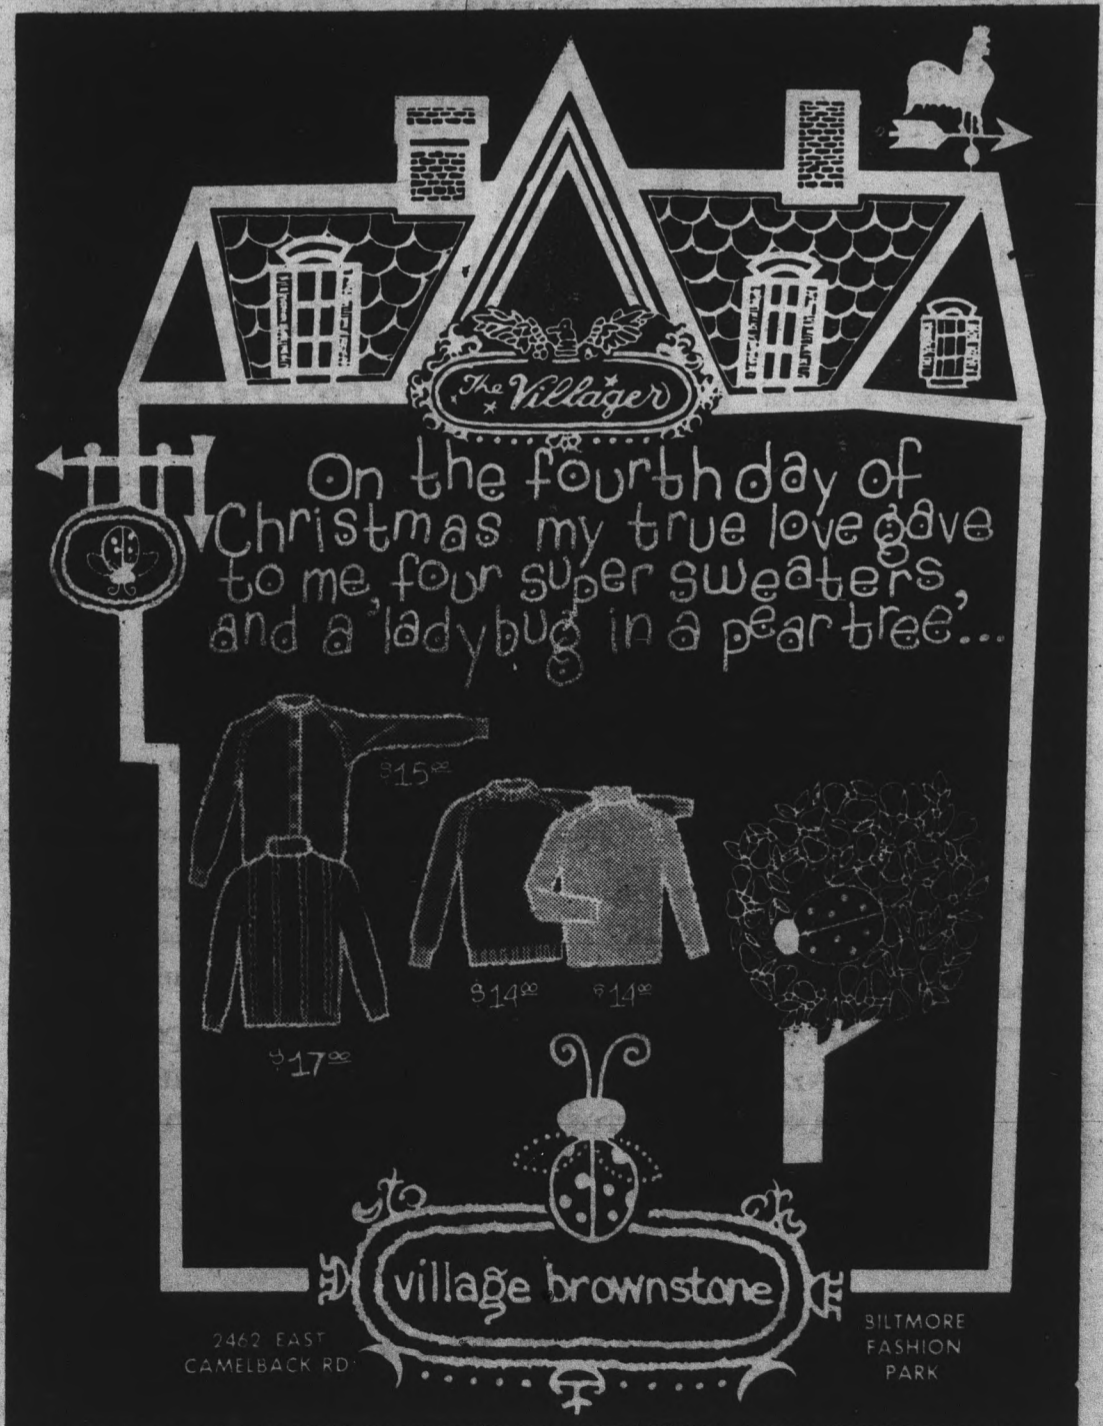 The Villager
On the fourth day of
Christmas my true love gave
to me, four super sweaters,
and a 'ladybug in a pear tree'...
$15.00
$14.00 $14.00
$17.00
village brownstone
2462 EAST
CAMELBACK RD.
BILTMORE
FASHION
PARK